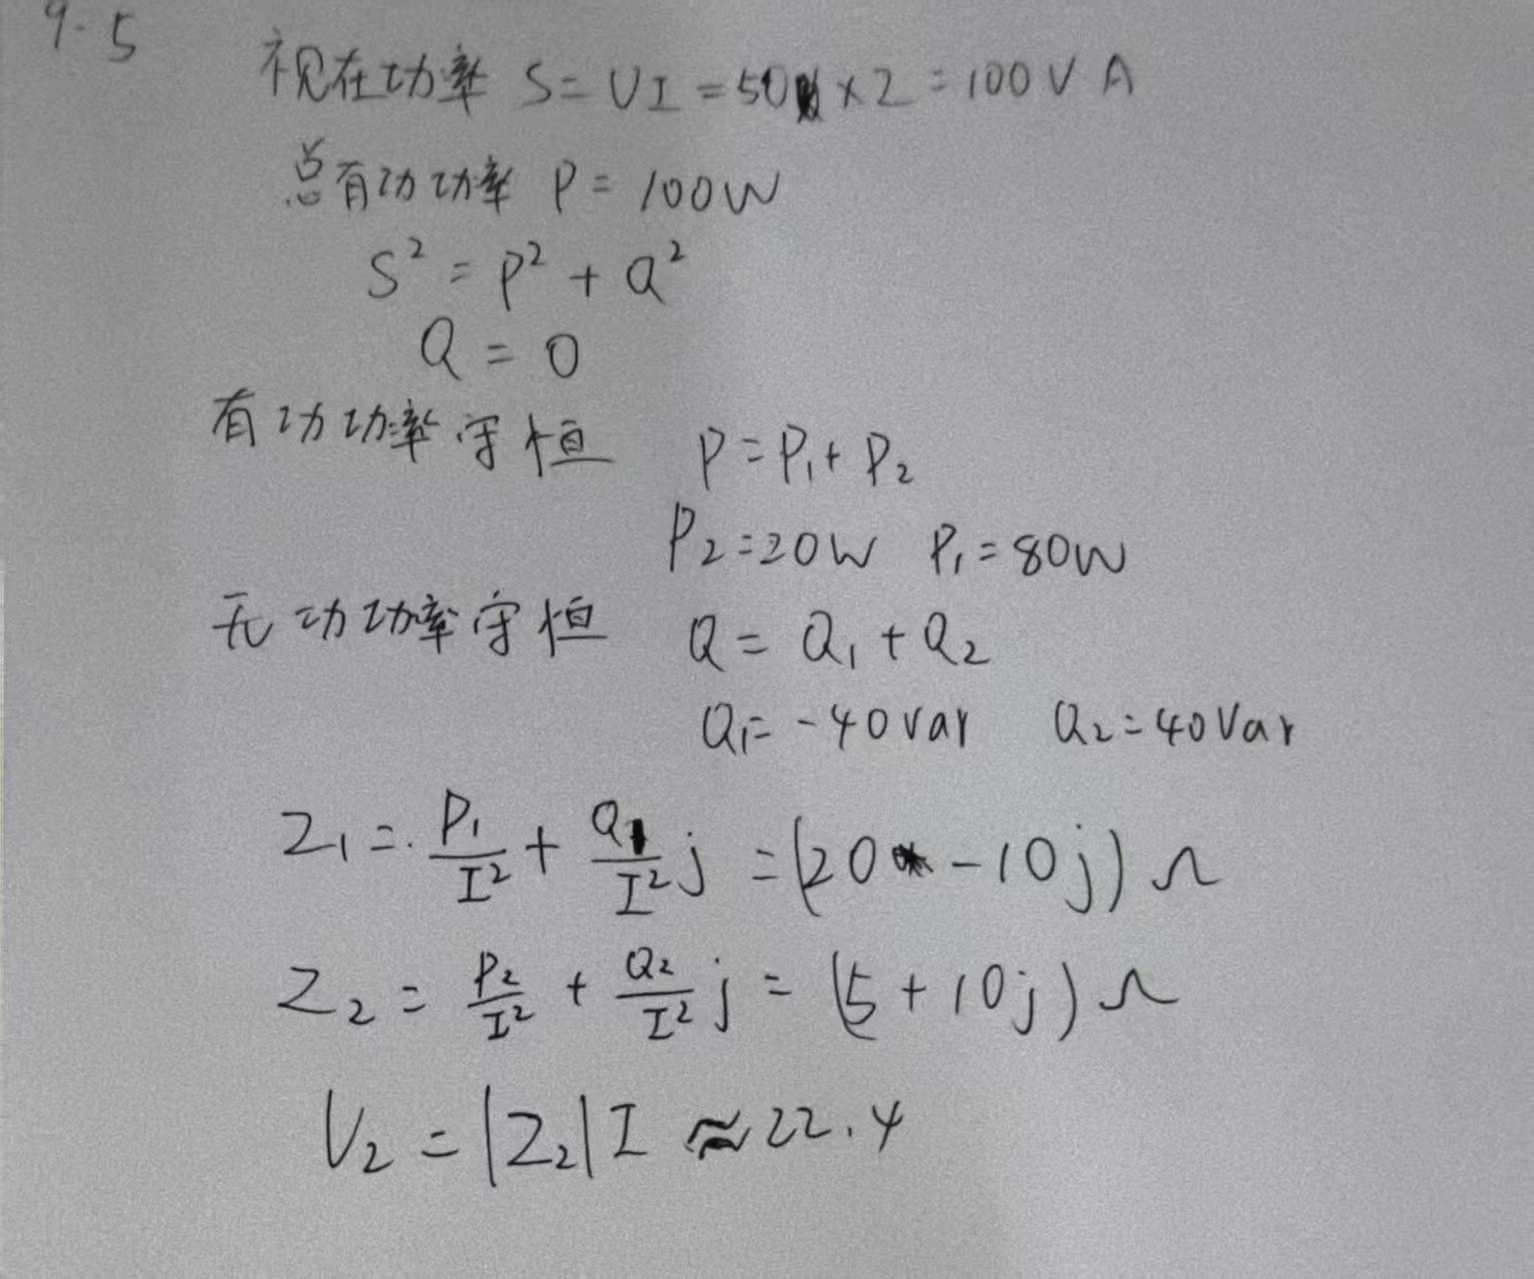 9-5
视在功率 S=UI=50×2=100VA
总有功功率 P=100W
S²=P²+Q²
Q=0
有功功率守恒 P=P₁+P₂
P₂=20W P₁=80W
无功功率守恒 Q=Q₁+Q₂
Q₁=-40Var Q₂=40Var
Z₁=P₁/I²+Q₁/I² j=(20-10j)Ω
Z₂=P₂/I²+Q₂/I² j=(5+10j)Ω
U₂=|Z₂|I≈22.4